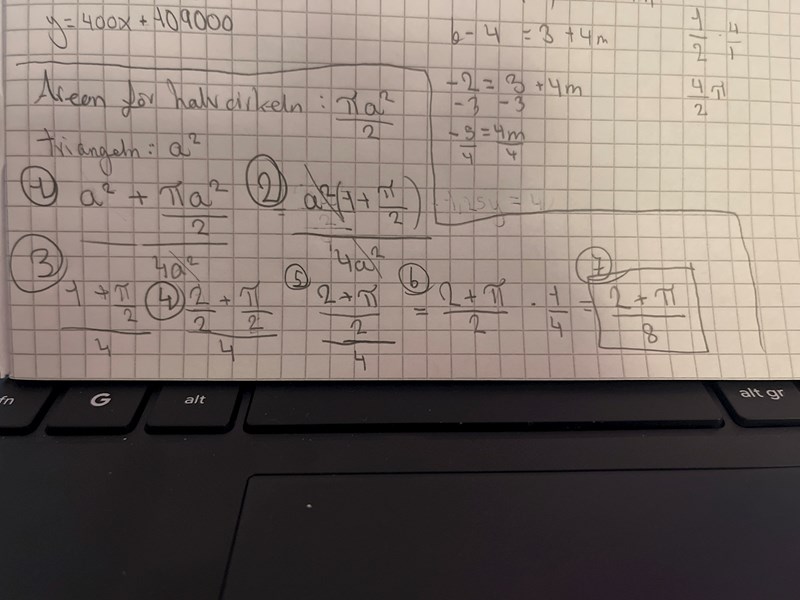 y=400x+109000
b-4 = 3+4m
1/2 · 4/1
-2 = 3 + 4m
-3 -3
4/2 π
Areen för halvcirkeln : πa²/2
triangeln: a²
① (a² + πa²/2)/4a²
② = a²(1+π/2)/4a²
③ (1+π/2)/4
④ (2/2+π/2)/4
⑤ ((2+π)/2)/4
⑥ = (2+π)/2 · 1/4 =
⑦ (2+π)/8
fn
G
alt
alt gr